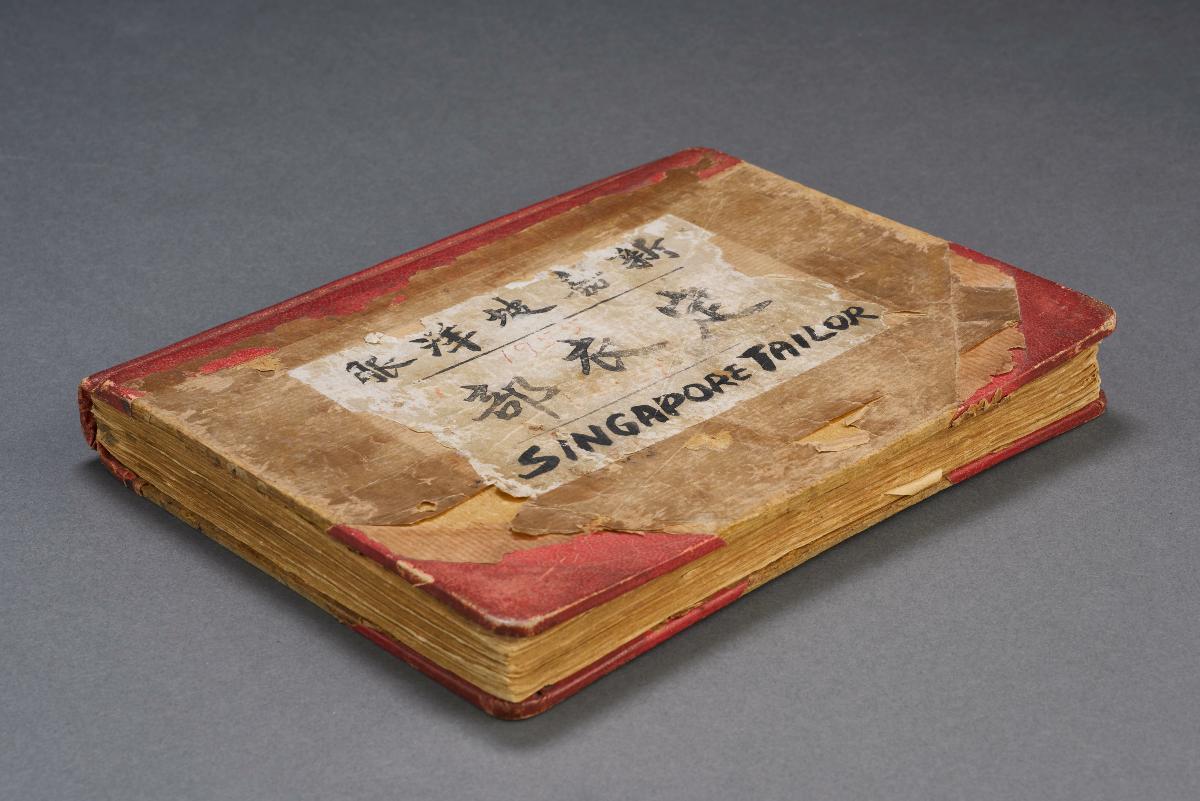 新嘉坡洋服
定衣部
SINGAPORE TAILOR